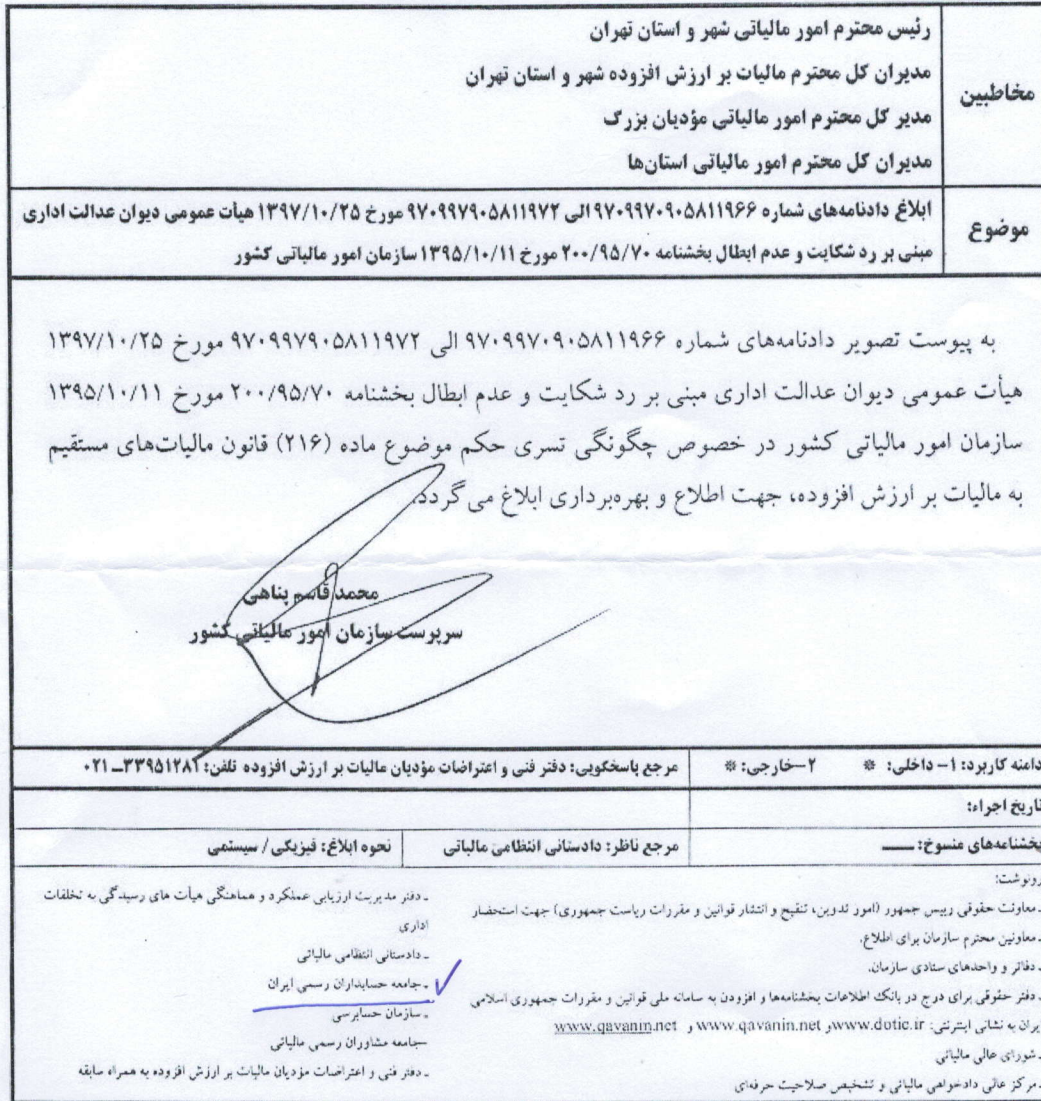 مخاطبین
رئیس محترم امور مالیاتی شهر و استان تهران
مدیران کل محترم مالیات بر ارزش افزوده شهر و استان تهران
مدیر کل محترم امور مالیاتی مؤدیان بزرگ
مدیران کل محترم امور مالیاتی استان‌ها
موضوع
ابلاغ دادنامه‌های شماره ۹۷۰۹۹۷۰۹۰۵۸۱۱۹۶۶ الی ۹۷۰۹۹۷۹۰۵۸۱۱۹۷۲ مورخ ۱۳۹۷/۱۰/۲۵ هیأت عمومی دیوان عدالت اداری
مبنی بر رد شکایت و عدم ابطال بخشنامه ۲۰۰/۹۵/۷۰ مورخ ۱۳۹۵/۱۰/۱۱ سازمان امور مالیاتی کشور
به پیوست تصویر دادنامه‌های شماره ۹۷۰۹۹۷۰۹۰۵۸۱۱۹۶۶ الی ۹۷۰۹۹۷۹۰۵۸۱۱۹۷۲ مورخ ۱۳۹۷/۱۰/۲۵
هیأت عمومی دیوان عدالت اداری مبنی بر رد شکایت و عدم ابطال بخشنامه ۲۰۰/۹۵/۷۰ مورخ ۱۳۹۵/۱۰/۱۱
سازمان امور مالیاتی کشور در خصوص چگونگی تسری حکم موضوع ماده (۲۱۶) قانون مالیات‌های مستقیم
به مالیات بر ارزش افزوده، جهت اطلاع و بهره‌برداری ابلاغ می‌گردد.
محمد قاسم پناهی
سرپرست سازمان امور مالیاتی کشور
دامنه کاربرد: ۱– داخلی: * ۲–خارجی: *
مرجع پاسخگویی: دفتر فنی و اعتراضات مؤدیان مالیات بر ارزش افزوده تلفن: ۳۳۹۵۱۲۸۱–۰۲۱
تاریخ اجراء:
بخشنامه‌های منسوخ: ——
مرجع ناظر: دادستانی انتظامی مالیاتی
نحوه ابلاغ: فیزیکی / سیستمی
رونوشت:
ـ معاونت حقوقی رییس جمهور (امور تدوین، تنقیح و انتشار قوانین و مقررات ریاست جمهوری) جهت استحضار
ـ معاونین محترم سازمان برای اطلاع.
ـ دفاتر و واحدهای ستادی سازمان.
ـ دفتر حقوقی برای درج در بانک اطلاعات بخشنامه‌ها و افزودن به سامانه ملی قوانین و مقررات جمهوری اسلامی
ایران به نشانی اینترنتی: www.dotic.ir و www.qavanin.net و www.qavanin.net
ـ شورای عالی مالیاتی
ـ مرکز عالی دادخواهی مالیاتی و تشخیص صلاحیت حرفه‌ای
ـ دفتر مدیریت ارزیابی عملکرد و هماهنگی هیأت های رسیدگی به تخلفات
اداری
ـ دادستانی انتظامی مالیاتی
ـ جامعه حسابداران رسمی ایران
ـ سازمان حسابرسی
–جامعه مشاوران رسمی مالیاتی
ـ دفتر فنی و اعتراضات مؤدیان مالیات بر ارزش افزوده به همراه سابقه